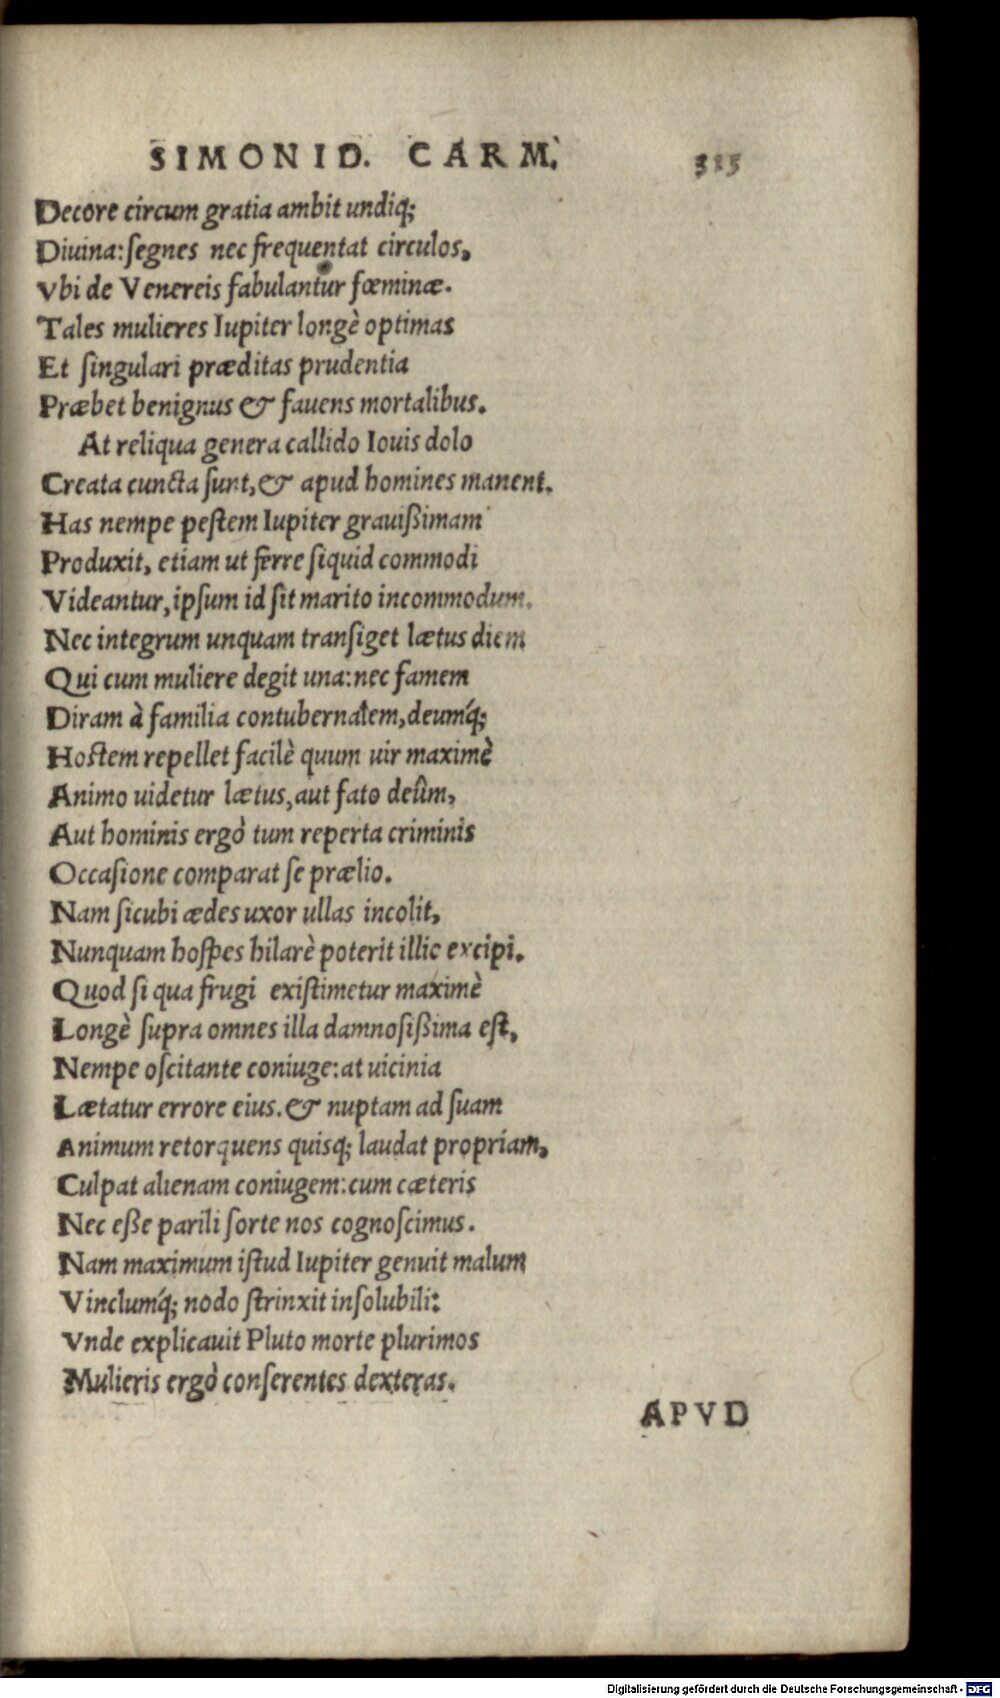 SIMONID. CARM. 315
Decore circum gratia ambit undiq;
Diuina: ſegnes nec frequentat circulos,
Vbi de Venereis fabulantur fœminæ.
Tales mulieres Iupiter longè optimas
Et ſingulari præditas prudentia
Præbet benignus & fauens mortalibus.
At reliqua genera callido Iouis dolo
Creata cuncta ſunt, & apud homines manent.
Has nempe peſtem Iupiter grauißimam
Produxit, etiam ut ferre ſiquid commodi
Videantur, ipſum id ſit marito incommodum.
Nec integrum unquam tranſiget lætus diem
Qui cum muliere degit una: nec famem
Diram à familia contubernalem, deumq́;
Hoſtem repellet facilè quum uir maximè
Animo uidetur lætus, aut fato deûm,
Aut hominis ergò tum reperta criminis
Occaſione comparat ſe prælio.
Nam ſicubi ædes uxor ullas incolit,
Nunquam hoſpes hilarè poterit illic excipi.
Quod ſi qua frugi exiſtimetur maximè
Longè ſupra omnes illa damnoſißima eſt,
Nempe oſcitante coniuge: at uicinia
Lætatur errore eius. & nuptam ad ſuam
Animum retorquens quisq; laudat propriam,
Culpat alienam coniugem: cum cæteris
Nec eße parili ſorte nos cognoſcimus.
Nam maximum iſtud Iupiter genuit malum
Vinclumq́; nodo ſtrinxit inſolubili:
Vnde explicauit Pluto morte plurimos
Mulieris ergò conſerentes dexteras.
APVD
Digitalisierung gefördert durch die Deutsche Forschungsgemeinschaft - DFG